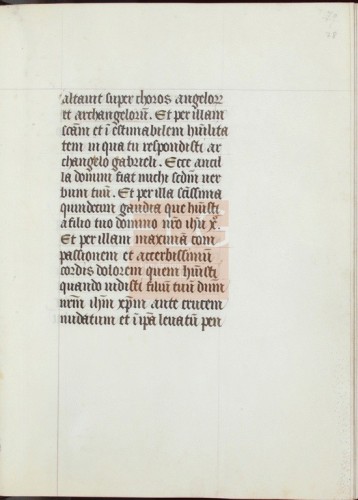 altauit super choros angelorz
et archangelorū. Et per illam
scām et ī estimabilem hūilita
tem in qua tu respondisti ar
changelo gabrieli. Ecce ancil
la domini fiat michi scdm uer
bum tuū. Et per illa scīssima
quindecim gaudia que hūisti
a filio tuo domino nrō ihū x̄.
Et per illam maximā com
passionem et accerbissimū
cordis dolorem quem hūisti
quando uidisti filiū tuū dūm
nrm̄ ihm̄ xp̄m ante crucem
nudatum et ī ip̄a leuatū pen